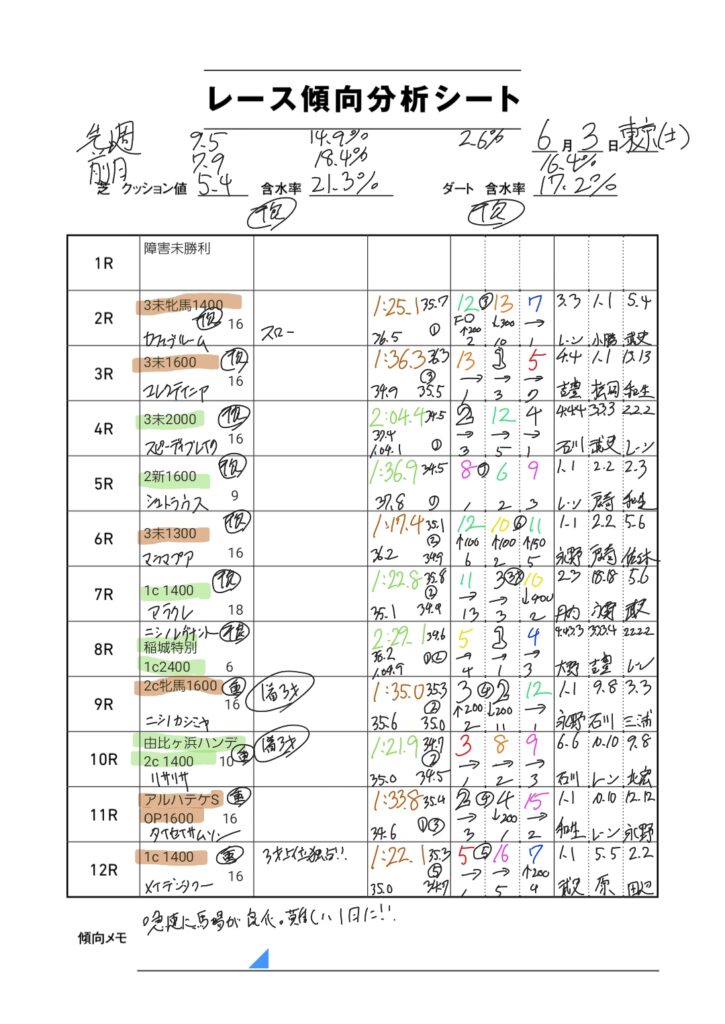 レース傾向分析シート
先週 9.5 14.9% 2.6% 6月3日 東京(土)
前月 7.9 18.4% 16.4%
芝 クッション値 5.4 含水率 21.3% ダート 含水率 17.2%
1R 障害未勝利
2R 3未牝馬1400 1:25.1 35.7 12 13 7 3.3 1.1 5.4
16 スロー 36.5 ① 2 10 1 レーン 武史
3R 3未1600 1:36.3 36.3 13 1 5 4.4 1.1 13.13
16 34.9 ③ 35.5 → → → 1 3 7 和生
4R 3未2000 2:04.4 34.5 2 12 4 4.4.4 3.3.3 2.2.2
スピーディブレイク 16 37.4 1.04.1 ① → → → 3 5 1 石川 武史 レーン
5R 2新1600 1:36.9 34.5 8 6 9 1.1 2.2 2.3
シュトラウス 9 37.8 ① 1 2 3 レーン 戸崎 和生
6R 3未1300 1:17.4 35.1 12 10 11 1.1 2.2 5.6
16 36.2 ② 34.9 ↑100 ↑100 ↑150 6 2 5 永野 戸崎 佐々木
7R 1c 1400 1:22.8 35.8 11 3 10 2.3 18.18 5.6
アラクレ 18 35.1 ② 34.9 → → ↓400 13 3 2
8R ニシノレヴナント 2:29.1 34.6 5 1 4 4.4.3.3 3.3.3.4 2.2.2.2
稲城特別
1c2400 6 1.04.9 → → → 4 1 3 大野 レーン
9R 2c牝馬1600 重 1着3才 1:35.0 35.3 3 ④ 2 12 1.1 9.8 3.3
ニシノカシミヤ 16 35.6 ② 35.0 ↑200 ↓200 → 2 11 1 永野 石川 三浦
10R 由比ヶ浜ハンデ 1着3才 1:21.9 34.7 3 8 9 6.6 10.10 9.8
2c 1400 10 重 ②
リサリサ 35.0 34.5 → → → 1 2 3 石川 レーン 北宏
11R アルハテケS 重 1:33.8 35.4 2 ④ 4 15 1.1 10.10 12.12
OP1600 16
タイセイサムソン 34.6 ①③ → ↓200 → 3 1 2 和生 レーン 永野
12R 1c 1400 重 3才上位独占!! 1:22.1 35.3 5 ⑤ 16 7 1.1 5.5 2.2
メイテンタワー 16 35.0 ⑤ 34.7 → → ↑200 1 5 4 武史 原 田辺
傾向メモ 急速に馬場が良化。難しい1日に!!